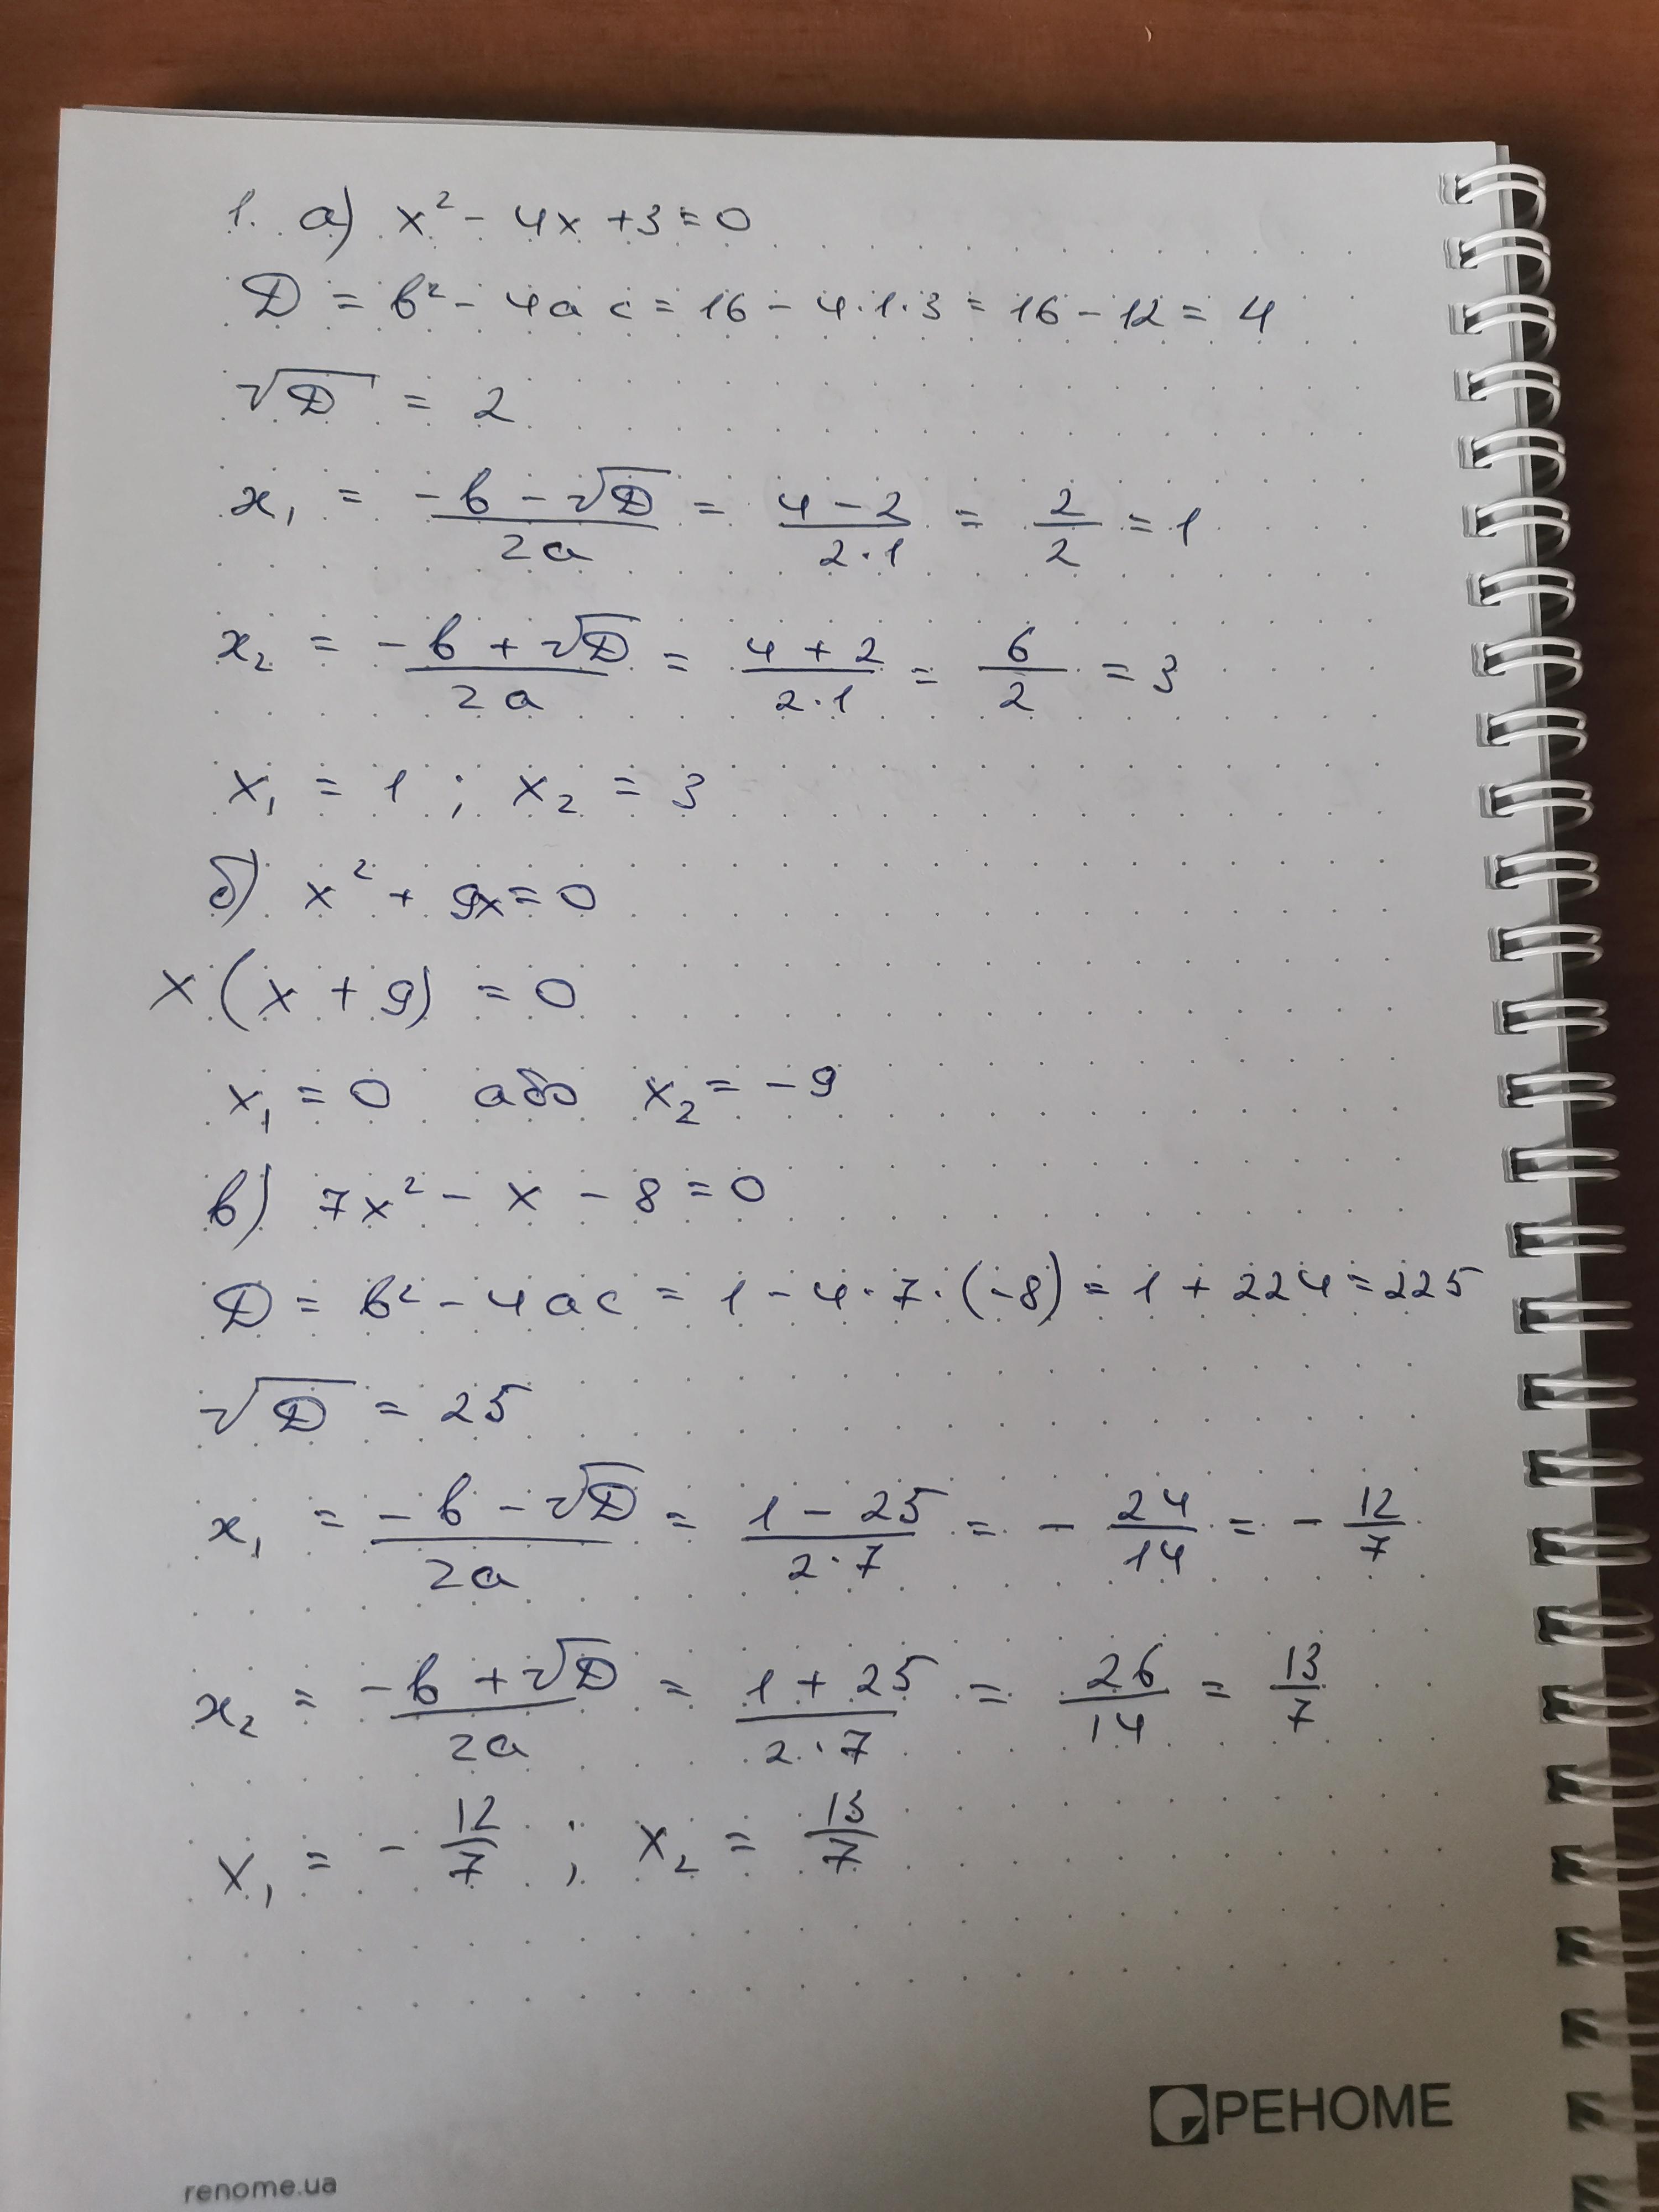 1. а) x² - 4x + 3 = 0
D = b² - 4ac = 16 - 4·1·3 = 16 - 12 = 4
√D = 2
x₁ = (-b - √D)/(2a) = (4 - 2)/(2·1) = 2/2 = 1
x₂ = (-b + √D)/(2a) = (4 + 2)/(2·1) = 6/2 = 3
x₁ = 1 ; x₂ = 3
б) x² + 9x = 0
x(x + 9) = 0
x₁ = 0 або x₂ = -9
в) 7x² - x - 8 = 0
D = b² - 4ac = 1 - 4·7·(-8) = 1 + 224 = 225
√D = 25
x₁ = (-b - √D)/(2a) = (1 - 25)/(2·7) = - 24/14 = - 12/7
x₂ = (-b + √D)/(2a) = (1 + 25)/(2·7) = 26/14 = 13/7
x₁ = - 12/7 ; x₂ = 13/7
РЕНОМЕ
renome.ua